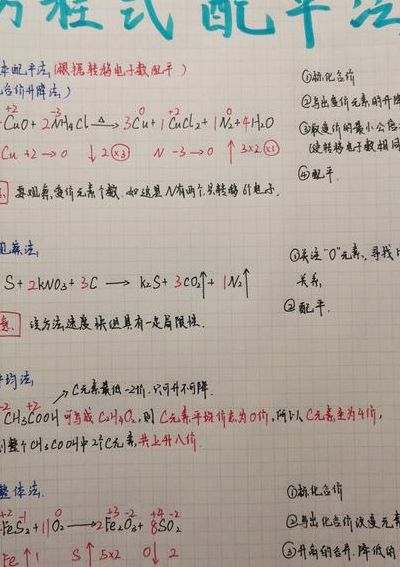 方程式配平法
本配平法(根据转移电子数配平)
化合价升降法)
+2 -3 0 +2 0
CuO + 2NH4Cl △→ 3Cu + 1CuCl2 + 1N2 + 4H2O
Cu +2→0 ↓2(×3) N -3→0 ↑3×2(×1)
要观察变价元素个数. 如这里N有两个,共转移6个电子.
①标化合价
②写出变价元素的升降
③取变价的最小公倍
(使转移电子数相同
④配平.
观察法,
S + 2KNO3 + 3C → K2S + 3CO2↑ + 1N2↑
意、该方法速度快但具有一定局限性.
①关注“O”元素, 寻找
关系,
②配平.
平均法,
→C元素最低-2价.只可升不可降.
-2 +2
CH3COOH 可写成C2H4O2,则C元素平均价态为0价,所以C元素变为4价,
则整个CH3COOH中2个C元素,共上升八价.
整体法.
+2 -1 0 +3 -2 +4 -2
FeS2 + 11O2 → 2Fe2O3 + 8SO2
Fe↑1 S↑5×2 O↓2
①标化合价
②写出化合价改变元素
③升高的合并.降低的